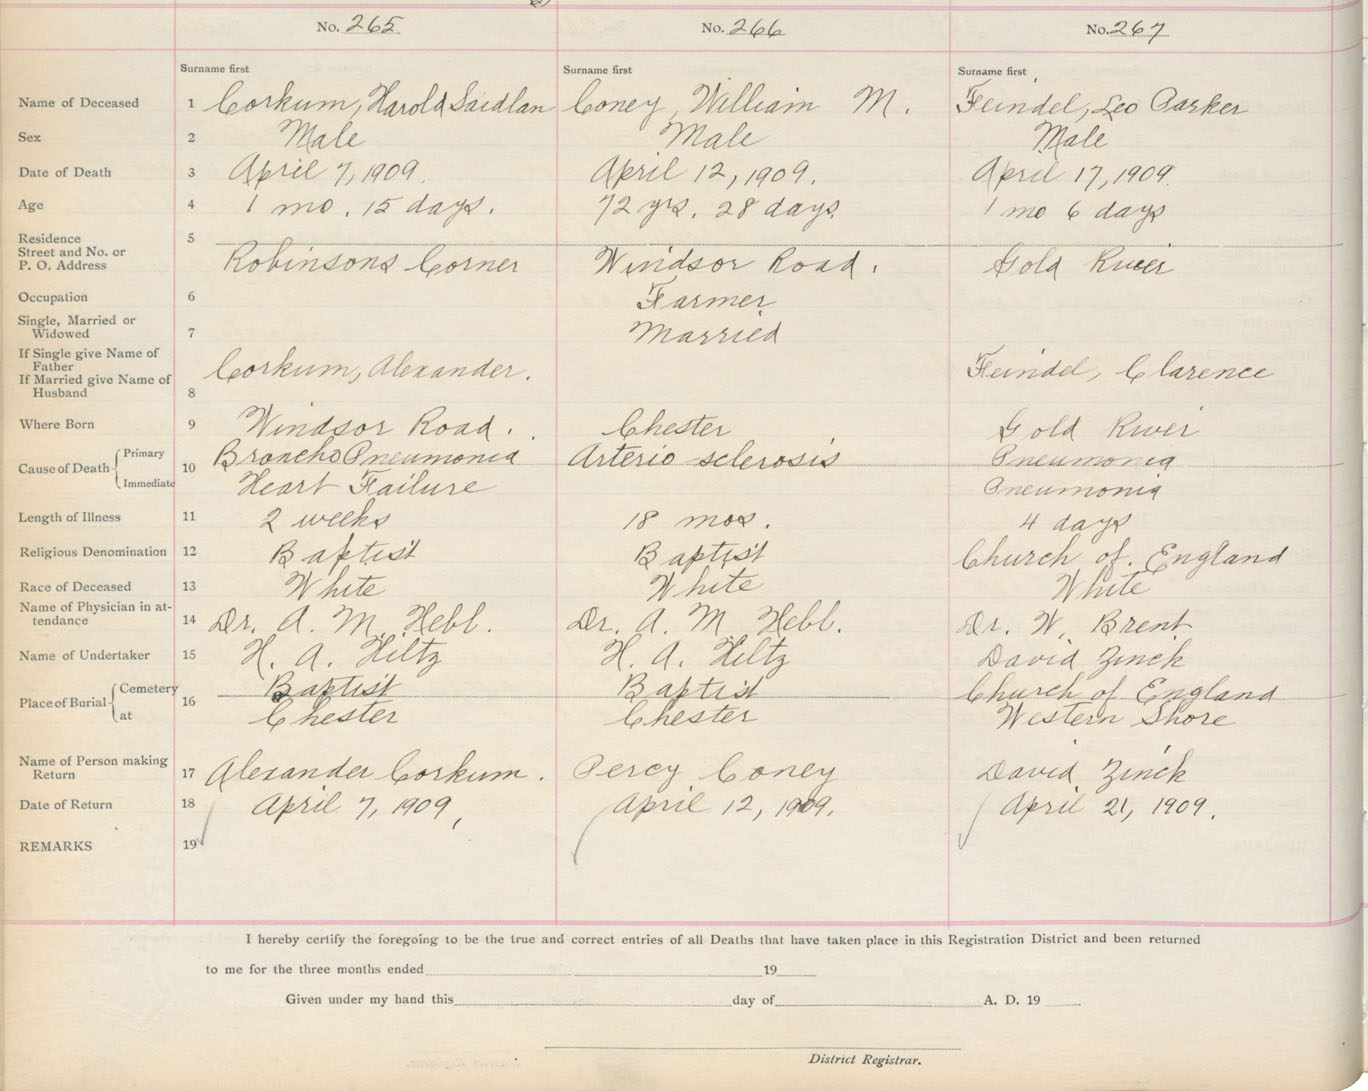 No. 265 No. 266 No. 267
Surname first Surname first Surname first
Name of Deceased 1 Corkum, Harold Saidlan Coney, William M. Feindel, Leo Parker
Sex 2 Male Male Male
Date of Death 3 April 7, 1909. April 12, 1909. April 17, 1909
Age 4 1 mo. 15 days. 72 yrs. 28 days. 1 mo 6 days
Residence 5
Street and No. or
P. O. Address Robinsons Corner Windsor Road. Gold River
Occupation 6 Farmer
Single, Married or
Widowed 7 Married
If Single give Name of
Father Corkum, Alexander. Feindel, Clarence
If Married give Name of
Husband 8
Where Born 9 Windsor Road. Chester Gold River
Cause of Death 10 Primary Broncho Pneumonia Arterio sclerosis Pneumonia
Immediate Heart Failure Pneumonia
Length of Illness 11 2 weeks 18 mos. 4 days
Religious Denomination 12 Baptist Baptist Church of England
Race of Deceased 13 White White White
Name of Physician in at-
tendance 14 Dr. A. M. Hebb. Dr. A. M. Hebb. Dr. W. Brent
Name of Undertaker 15 H. A. Hiltz H. A. Hiltz David Zinck
Place of Burial 16 Cemetery Baptist Baptist Church of England
at Chester Chester Western Shore
Name of Person making
Return 17 Alexander Corkum. Percy Coney David Zinck
Date of Return 18 April 7, 1909, April 12, 1909. April 21, 1909.
REMARKS 19
I hereby certify the foregoing to be the true and correct entries of all Deaths that have taken place in this Registration District and been returned
to me for the three months ended 19
Given under my hand this day of A. D. 19
District Registrar.